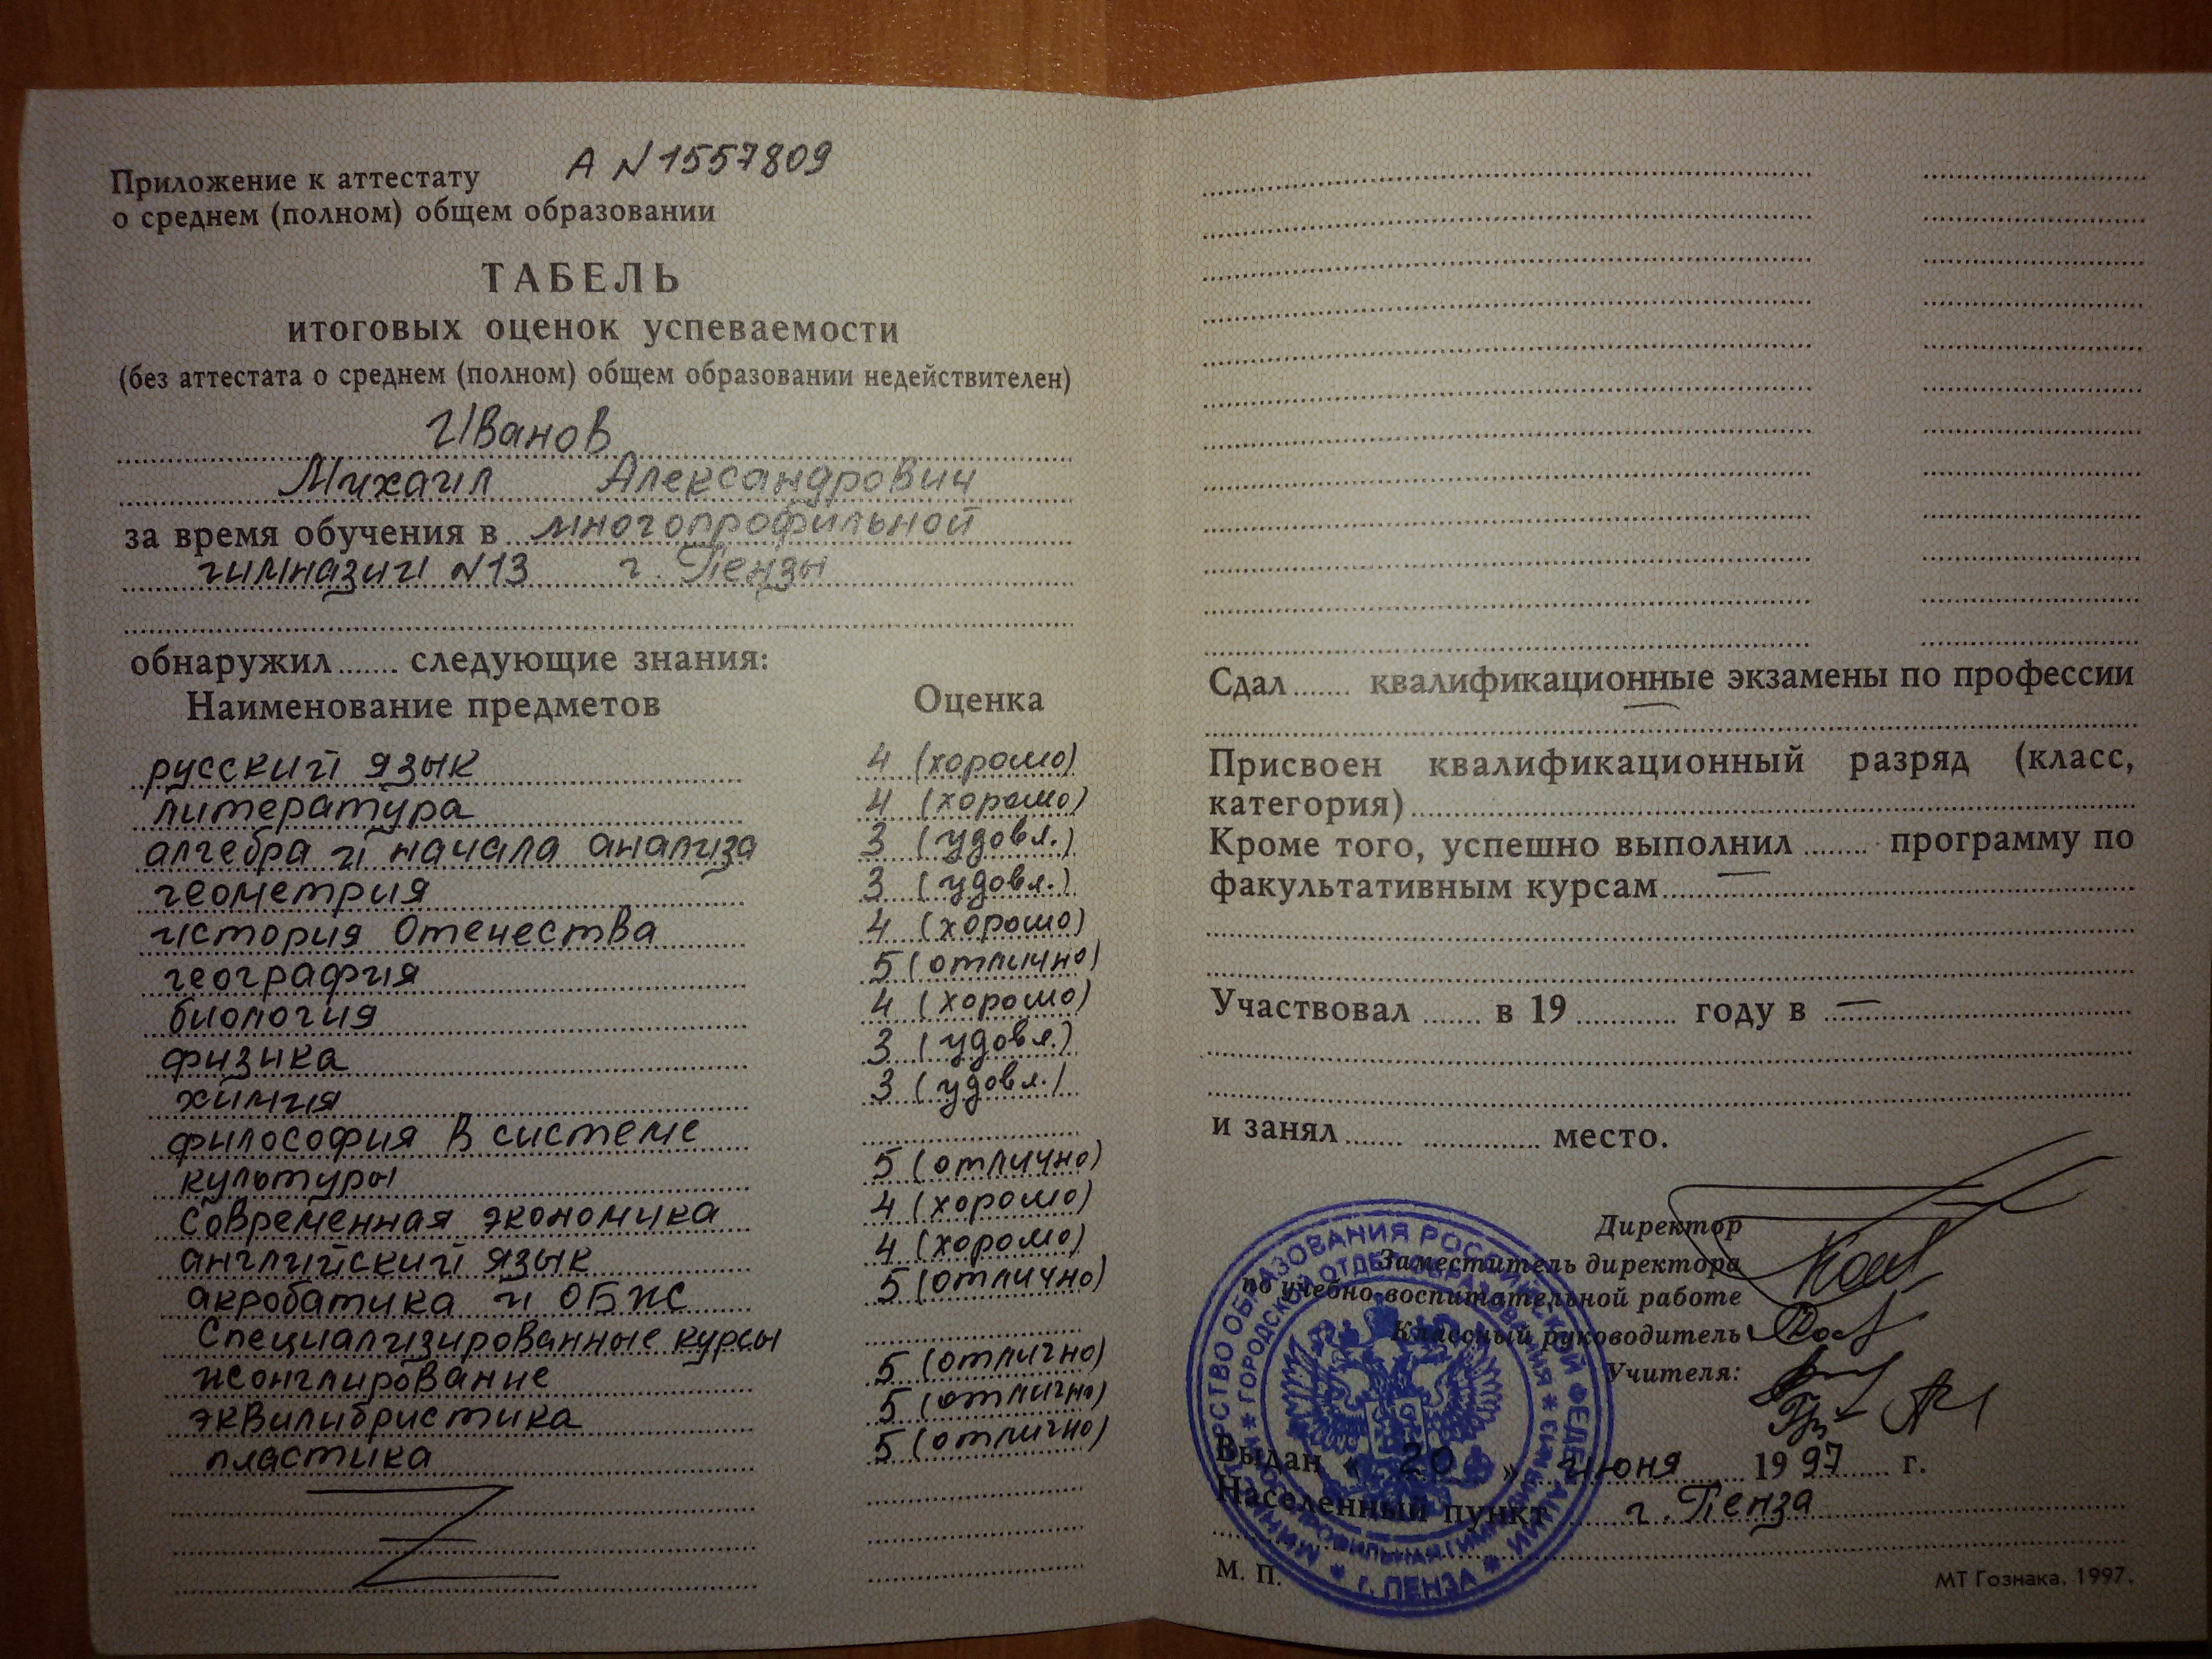 Приложение к аттестату А N1557809
о среднем (полном) общем образовании
ТАБЕЛЬ
итоговых оценок успеваемости
(без аттестата о среднем (полном) общем образовании недействителен)
Иванов
Михаил Александрович
за время обучения в многопрофильной
гимназии N13 г. Пензы
обнаружил ....... следующие знания:
Наименование предметов Оценка
русский язык 4 (хорошо)
литература 4 (хорошо)
алгебра и начала анализа 3 (удовл.)
геометрия 3 (удовл.)
история Отечества 4 (хорошо)
география 5 (отлично)
биология 4 (хорошо)
физика 3 (удовл.)
химия 3 (удовл.)
философия в системе
культуры 5 (отлично)
Современная экономика 4 (хорошо)
английский язык 4 (хорошо)
акробатика и ОБЖ 5 (отлично)
Специализированные курсы
жонглирование 5 (отлично)
эквилибристика 5 (отлично)
пластика 5 (отлично)
Сдал ....... квалификационные экзамены по профессии
Присвоен квалификационный разряд (класс,
категория)
Кроме того, успешно выполнил ....... программу по
факультативным курсам —
Участвовал ....... в 19 ........... году в —
и занял ....... ............. место.
Директор
Заместитель директора
по учебно-воспитательной работе
Классный руководитель
Учителя:
Выдан « 20 » июня 1997 г.
Населенный пункт г. Пенза
М. П.
МТ Гознака. 1997.
г. ПЕНЗА